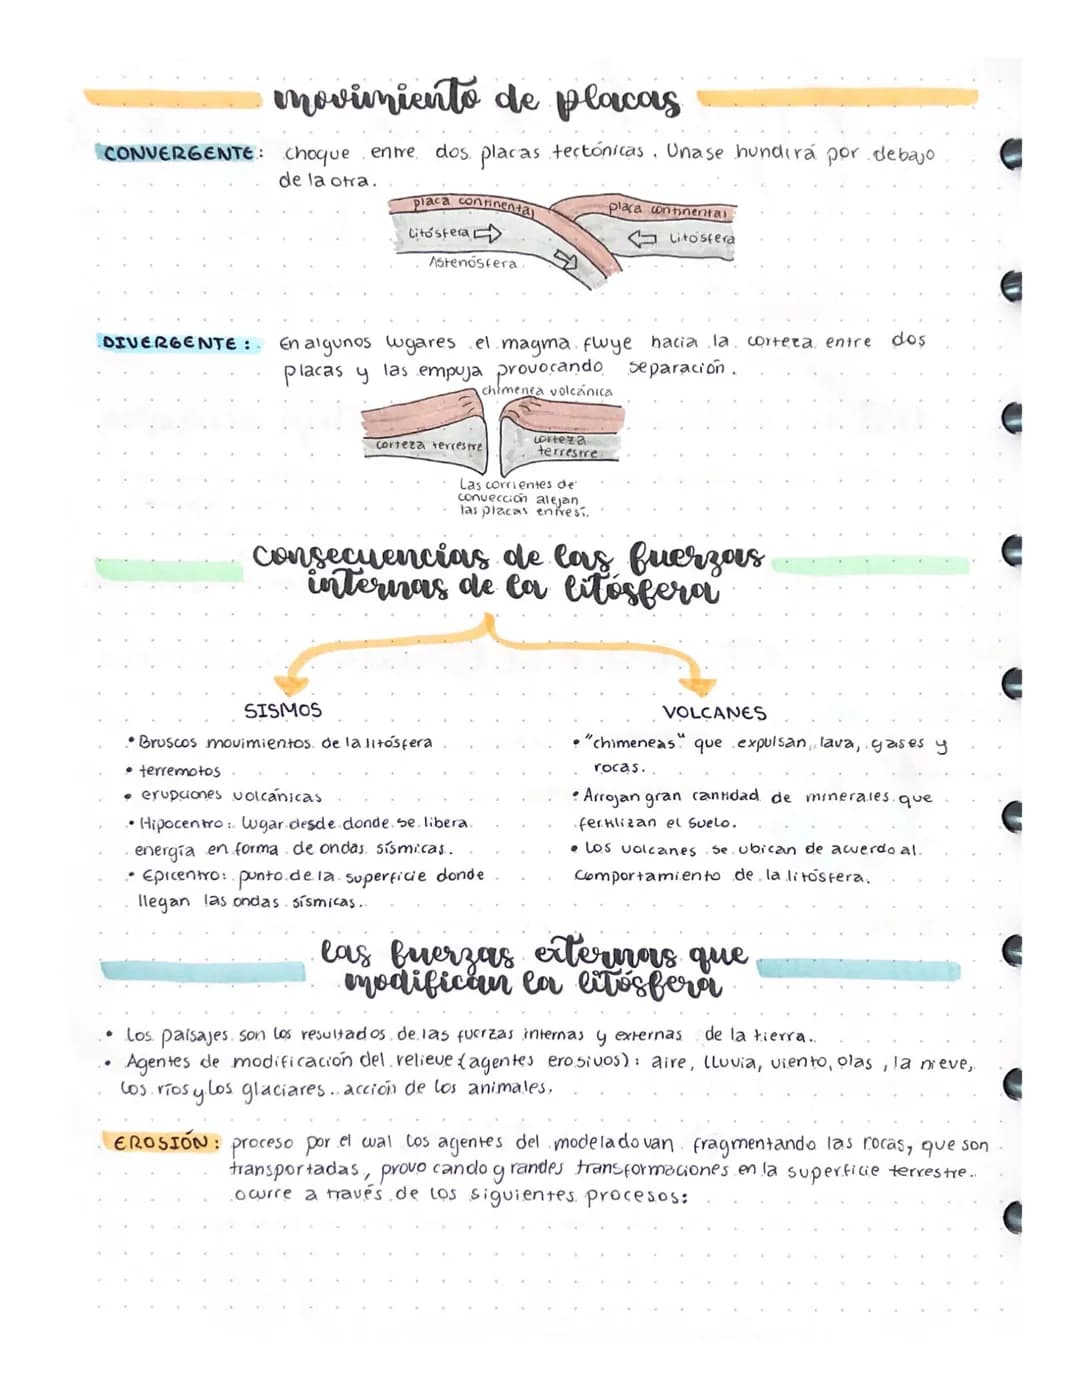 movimiento de placas
CONVERGENTE: choque entre dos placas tectónicas. Una se hundirá por debajo
de la otra.
placa continental
placa continental
Litósfera
Litósfera
Astenósfera
DIVERGENTE: En algunos lugares el magma fluye hacia la corteza entre dos
placas y las empuja provocando separación.
chimenea volcánica
corteza terrestre
corteza
terrestre
Las corrientes de
convección alejan
las placas entre sí.
consecuencias de las fuerzas
internas de la litósfera
SISMOS
• Bruscos movimientos de la litósfera
• terremotos
• erupciones volcánicas
• Hipocentro: lugar desde donde se libera
energía en forma de ondas sísmicas.
• Epicentro: punto de la superficie donde
llegan las ondas sísmicas.
VOLCANES
• "chimeneas" que expulsan lava, gases y
rocas.
• Arrojan gran cantidad de minerales que
fertilizan el suelo.
• Los volcanes se ubican de acuerdo al
comportamiento de la litósfera.
las fuerzas externas que
modifican la litósfera
• Los paísajes son los resultados de las fuerzas internas y externas de la tierra.
• Agentes de modificación del relieve (agentes erosivos): aire, lluvia, viento, olas, la nieve,
los ríos y los glaciares. acción de los animales.
EROSIÓN: proceso por el cual los agentes del modelado van fragmentando las rocas, que son
transportadas, provocando grandes transformaciones en la superficie terrestre.
ocurre a través de los siguientes procesos: